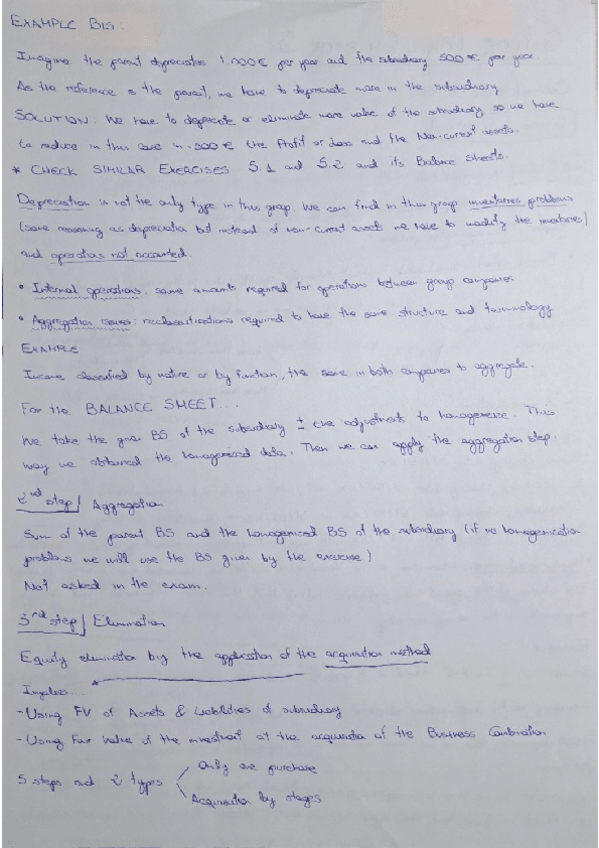 EXAMPLE BIS:
Imagine the parent depreciates 1.000€ per year and the subsidiary 500€ per year.
As the reference is the parent, we have to depreciate more in the subsidiary.
SOLUTION: We have to depreciate or eliminate more value of the subsidiary so we have
to reduce in this case in -500€ the Profit or Loss and the Non-current assets.
* CHECK SIMILAR EXERCISES 5.1 and 5.2 and its Balance sheets.
Depreciation is not the only type in this group. We can find in this group inventories problems
(same reasoning as depreciation but instead of non-current assets we have to modify the inventories)
and operations not accounted.
• Internal operations: same amounts required for operations between group companies
• Aggregation issues: reclassifications required to have the same structure and terminology
EXAMPLE
Income classified by nature or by function, the same in both companies to aggregate.
For the BALANCE SHEET...
We take the given BS of the subsidiary ± the adjustments to homogenise. This
way we obtained the homogenised data. Then we can apply the aggregation step.
2nd step/ Aggregation
Sum of the parent BS and the homogenised BS of the subsidiary (if no homogenization
problems we will use the BS given by the exercise)
Not asked in the exam.
3rd step/ Elimination
Equity elimination by the application of the acquisition method
Implies...
-Using FV of Assets & Liabilities of subsidiary
-Using Fair Value of the investment at the acquisition of the Business Combination
5 steps and 2 types
Only one purchase
Acquisition by stages